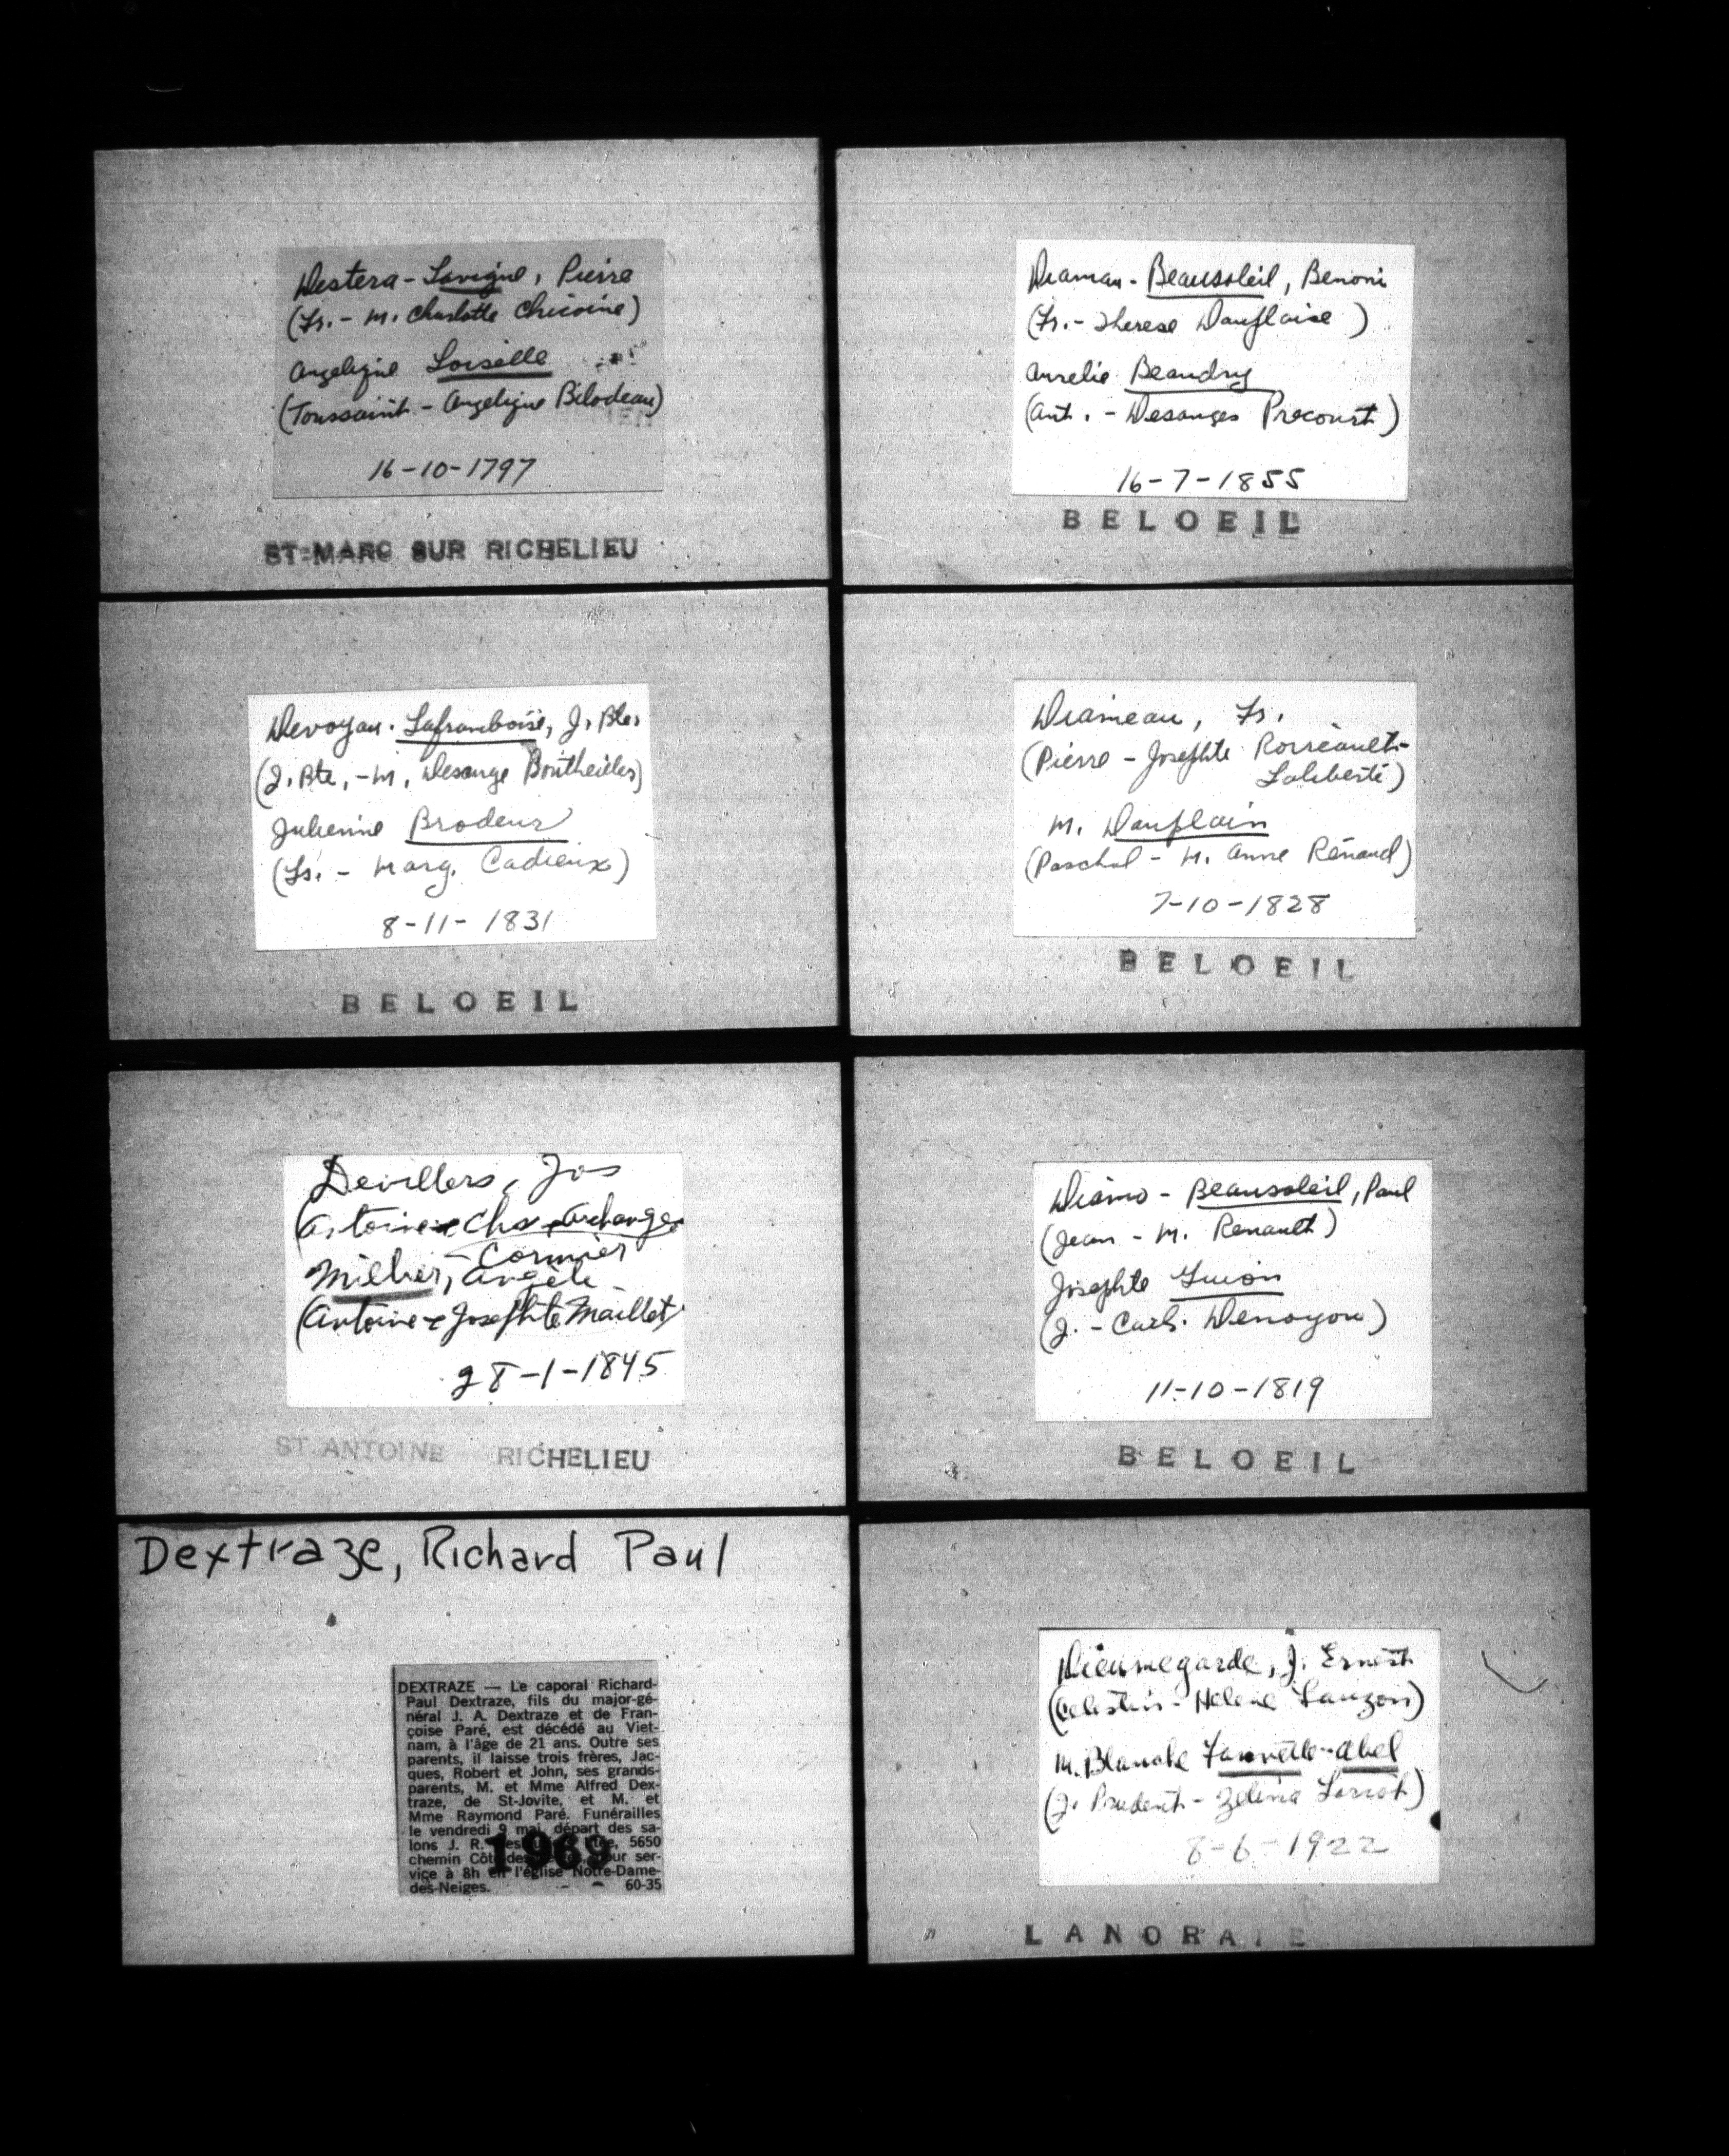 Destera-Lavigne, Pierre
(Fr. - M. Charlotte Chicoine)
Angelique Loiselle
(Toussaint - Angelique Bilodeau)
16-10-1797
ST-MARC SUR RICHELIEU
Devoyau-Laframboise, J. Bte.
(J. Bte, - M. Desange Boutheiller)
Julienne Brodeur
(Fr. - Marg. Cadieux)
8-11-1831
BELOEIL
Devillers, Jos
(Antoine & Archange
- Cormier
Milher, Angèle
(Antoine & Josephte Maillet)
28-1-1845
ST ANTOINE RICHELIEU
Dextraze, Richard Paul
DEXTRAZE — Le caporal Richard-
Paul Dextraze, fils du major-gé-
néral J. A. Dextraze et de Fran-
çoise Paré, est décédé au Viet-
nam, à l'âge de 21 ans. Outre ses
parents, il laisse trois frères, Jac-
ques, Robert et John, ses grands-
parents, M. et Mme Alfred Dex-
traze, de St-Jovite, et M. et
Mme Raymond Paré. Funérailles
le vendredi 9 mai, départ des sa-
lons J. R. Ltée, 5650
chemin Côte des pour ser-
vice à 8h en l'église Notre-Dame-
des-Neiges. 60-35
1969
Diaman-Beausoleil, Benoni
(Fr. - Therese Dauplaise)
Aurelie Beaudry
(Ant. - Desanges Precourt)
16-7-1855
BELOEIL
Diameau, Fr.
(Pierre - Josephte
Laliberté)
M. Dauplain
(Paschal - M. Anne Renaud)
7-10-1828
BELOEIL
Diamo - Beausoleil, Paul
(Jean - M. Renault)
Josephte Guion
(J. - Cath. Denoyou)
11-10-1819
BELOEIL
Dieumegarde, J. Ernest
(Celestin - Helene Lauzon)
M. Blanche Fauvelle-Abel
(J. Prudent - Zelina Loriot)
8-6-1922
LANORAIE